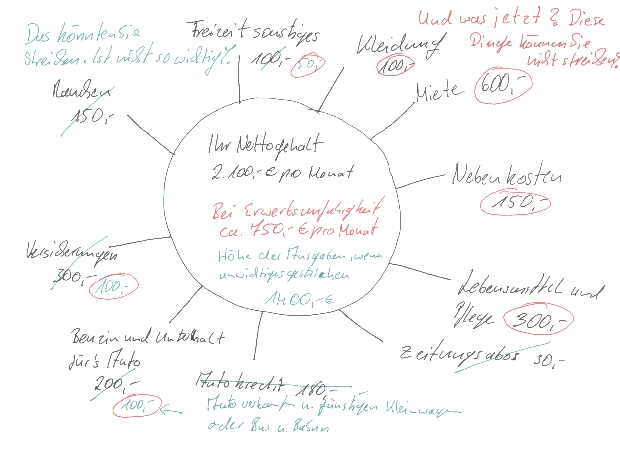 Das könnten Sie
streichen. Ist nicht so wichtig!
Freizeit sonstiges
100,- 50,-
Kleidung
100,-
Und was jetzt? Diese
Dinge können Sie
nicht streichen?
Miete 600,-
Rauchen
150,-
Ihr Nettogehalt
2.100,- € pro Monat
Bei Erwerbsunfähigkeit
ca. 750,- € pro Monat
Höhe der Ausgaben, wenn
unwichtiges gestrichen
1400,- €
Nebenkosten
150,-
Versicherungen
300,- 100,-
Lebensmittel und
Pflege 300,-
Zeitungsabos 30,-
Benzin und Unterhalt
für's Auto
200,-
100,-
Autokredit 180,-
Auto verkauft u. günstigen Kleinwagen
oder Bus u. Bahn